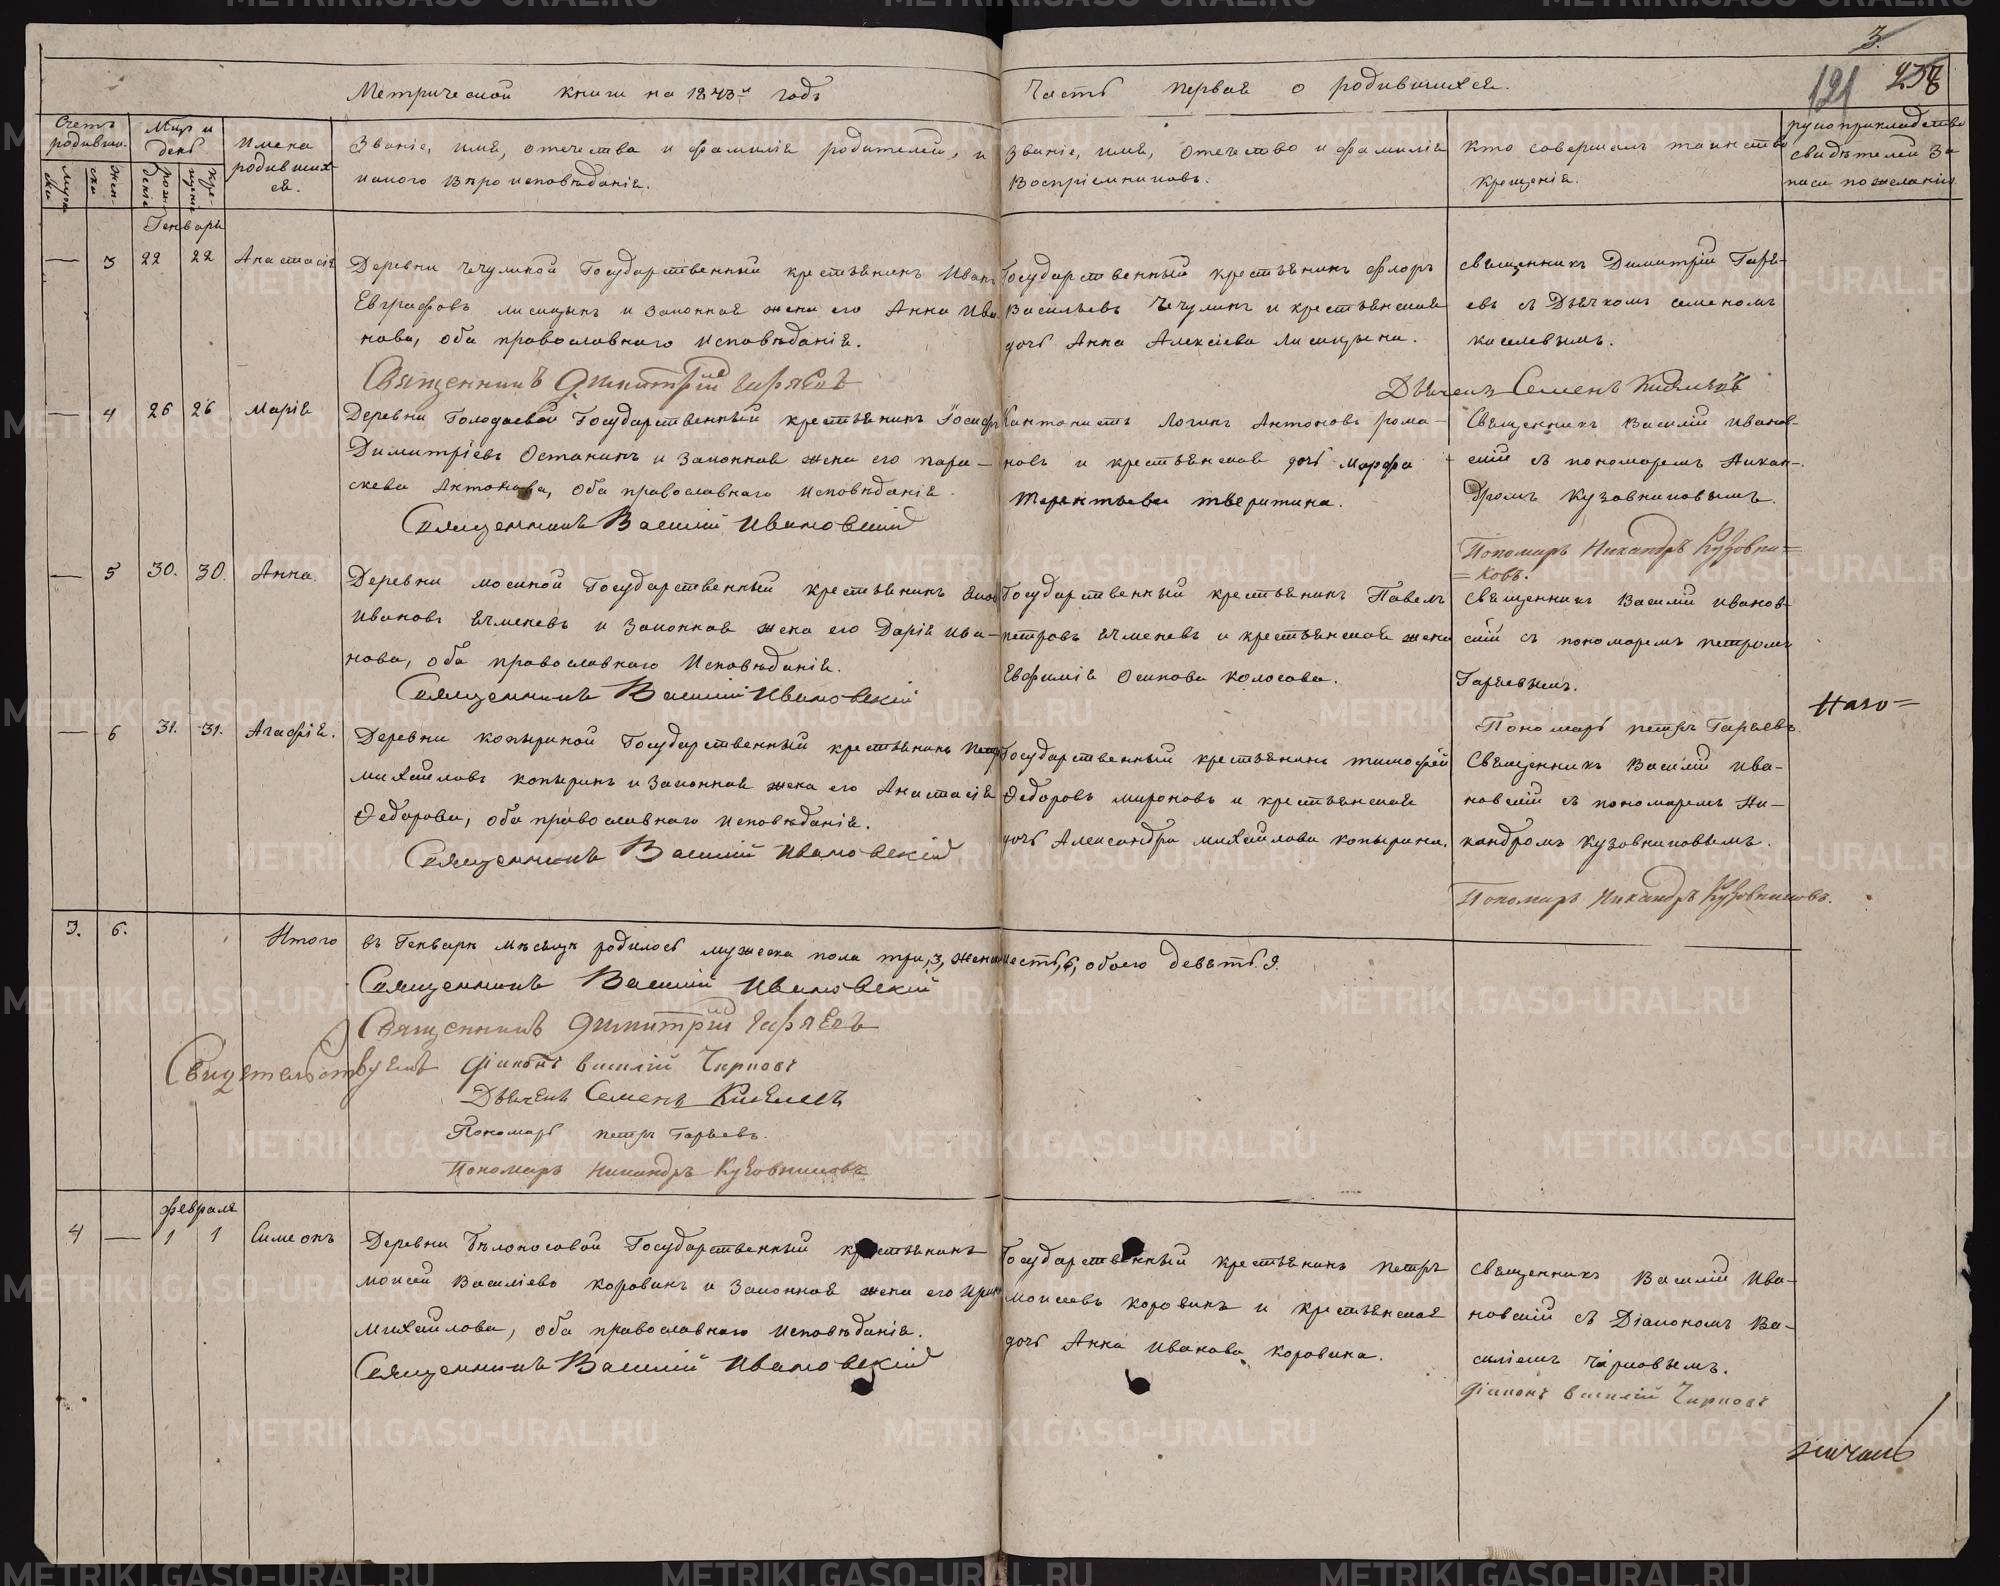 3.
121 237
Метрической книги на 1873й годъ
Часть первая о родившихся.
Счетъ родивши.
Мцъ и день
Имена родивших-ся.
Званіе, имя, отечества и фамилія родителей, и
какого вѣроисповѣданія.
Званіе, имя, отечество и фамилія
воспріемниковъ.
Кто совершалъ таинство
крещенія.
рукоприкладство
свидѣтелей за
писи по желанію.
Генварь
— 3 22 22 Анастасія
Деревни Чечулиной Государственный крестьянинъ Иванъ
Евграфовъ Лисицынъ и законная жена его Анна Ива-
нова, оба православнаго исповѣданія.
Священникъ Димитрій Гаряевъ
Государственный крестьянинъ Флоръ
Васильевъ Чечулинъ и крестьянская
дочь Анна Алексіева Лисицына.
священникъ Димитрій Гаря-
евъ съ Дьячкомъ Семеномъ
Киселевымъ.
Дьячекъ Семенъ Киселевъ
— 4 26 26 Марія
Деревни Голодаевой Государственный крестьянинъ Іосифъ
Димитріевъ Останинъ и законная жена его Пара-
скева Антонова, оба православнаго исповѣданія.
Священникъ Василій Ивановскій
Кантонистъ Логинъ Антоновъ Рома-
новъ и крестьянская дочь Марфа
Терентьева Тверитина.
Священникъ Василій Иванов-
скій съ пономаремъ Никан-
дромъ Кузовниковымъ.
Пономарь Никандръ Кузовни=
=ковъ.
— 5 30. 30. Анна.
Деревни Мосиной Государственный крестьянинъ
Ивановъ Ячменевъ и законная жена его Дарія Ива-
нова, оба православнаго исповѣданія.
Священникъ Василій Ивановскій
Государственный крестьянинъ Павелъ
Петровъ Ячменевъ и крестьянская жена
Евфимія Осипова Колосова.
Священникъ Василій Иванов-
скій съ пономаремъ Петромъ
Гаряевымъ.
Пономарь Петръ Гаряевъ.
— 6 31. 31. Агафія.
Деревни Копыриной Государственный крестьянинъ Петръ
Михайловъ Копыринъ и законная жена его Анастасія
Ѳедорова, оба православнаго исповѣданія.
Священникъ Василій Ивановскій
Государственный крестьянинъ Тимофей
Ѳедоровъ Мироновъ и крестьянская
дочь Александра Михайлова Копырина.
Священникъ Василій Ива-
новскій съ пономаремъ Ни-
кандромъ Кузовниковымъ.
Пономарь Никандръ Кузовниковъ.
3. 6. Итого въ Генварѣ мѣсяцѣ родилось мужеска пола три, 3, женска шесть, 6, обоего девять. 9.
Священникъ Василій Ивановскій
Священникъ Димитрій Гаряевъ
Свидетельствуемъ Діаконъ Василій Чирковъ
Дьячекъ Семенъ Киселевъ
Пономарь Петръ Гаряевъ.
Пономарь Никандръ Кузовниковъ
Февраля
4 — 1 1 Симеонъ
Деревни Бѣлоносовой Государственный крестьянинъ
Моисей Василіевъ Коровинъ и законная жена его Ирина
Михайлова, оба православнаго исповѣданія.
Священникъ Василій Ивановскій
Государственный крестьянинъ Петръ
Моисеевъ Коровинъ и крестьянская
дочь Анна Иванова Коровина.
Священникъ Василій Ива-
новскій съ Діакономъ Ва-
силіемъ Чирковымъ.
Діаконъ Василій Чирковъ
METRIKI.GASO-URAL.RU